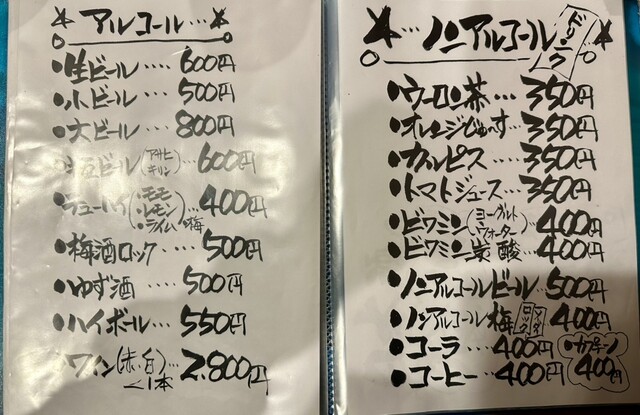 アルコール…
・生ビール‥‥600円
・小ビール‥‥500円
・大ビール…800円
ビール(アサヒ キリン)…600円
・チューハイ(・モモ ・レモン ・ライム ・梅)…400円
・梅酒ロック…500円
・ゆず酒 …500円
・ハイボール…550円
・ワイン(赤・白)…2.800円
1本
…ノンアルコール ドリンク
・ウーロン茶…350円
・オレンジじゅーす…350円
・カルピス…350円
・トマトジュース…350円
・ビワミン(ヨーグルト ウォーター)…400円
・ビワミン炭酸…400円
・ノンアルコールビール…500円
・ノンアルコール梅 ロック ソーダ 400円
・コーラ…400円
・コーヒー…400円
・カプチーノ 400円